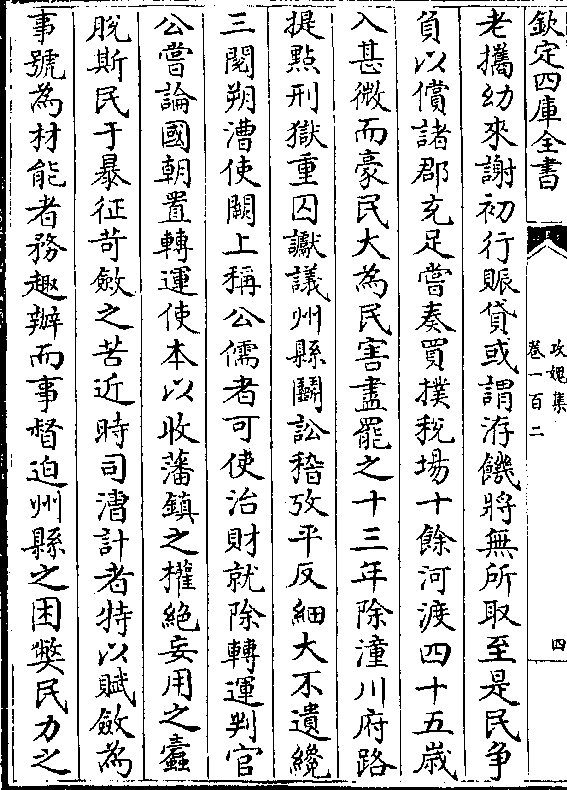 欽定四庫全書
攻媿集
卷一百二
四
老攜幼來謝初行賑貸或謂洊饑將無所取至是民争
負以償諸郡充足嘗奏買撲稅場十餘河渡四十五歳
入甚微而豪民大為民害盡罷之十三年除潼川府路
提點刑獄重囚讞議州縣鬭訟稽攷平反細大不遺纔
三閱朔漕使闕上稱公儒者可使治財就除轉運判官
公嘗論國朝置轉運使本以收藩鎮之權絶妄用之蠧
脫斯民于暴征苛斂之苦近時司漕計者特以賦斂為
事號為材能者務趣辦而事督迫州縣之困獘民力之